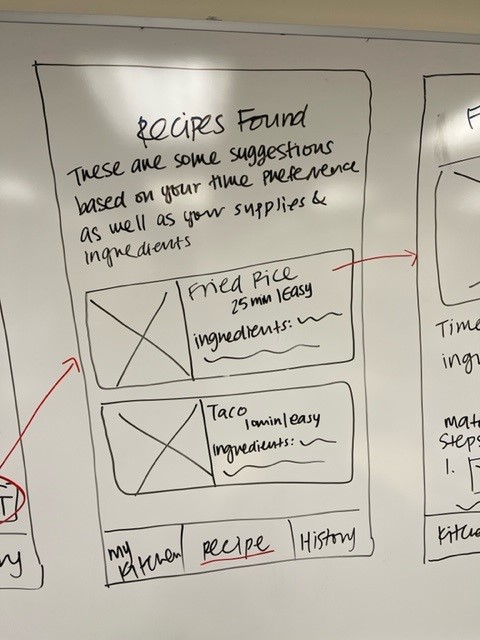 Recipes Found
These are some suggestions
based on your time preference
as well as your supplies &
ingredients
Fried Rice
25 min | Easy
ingredients:
Taco
10min | easy
ingredients:
my
Kitchen
recipe
History
F
Time
ingr
mat
Steps
1.
Kitche
T
ry